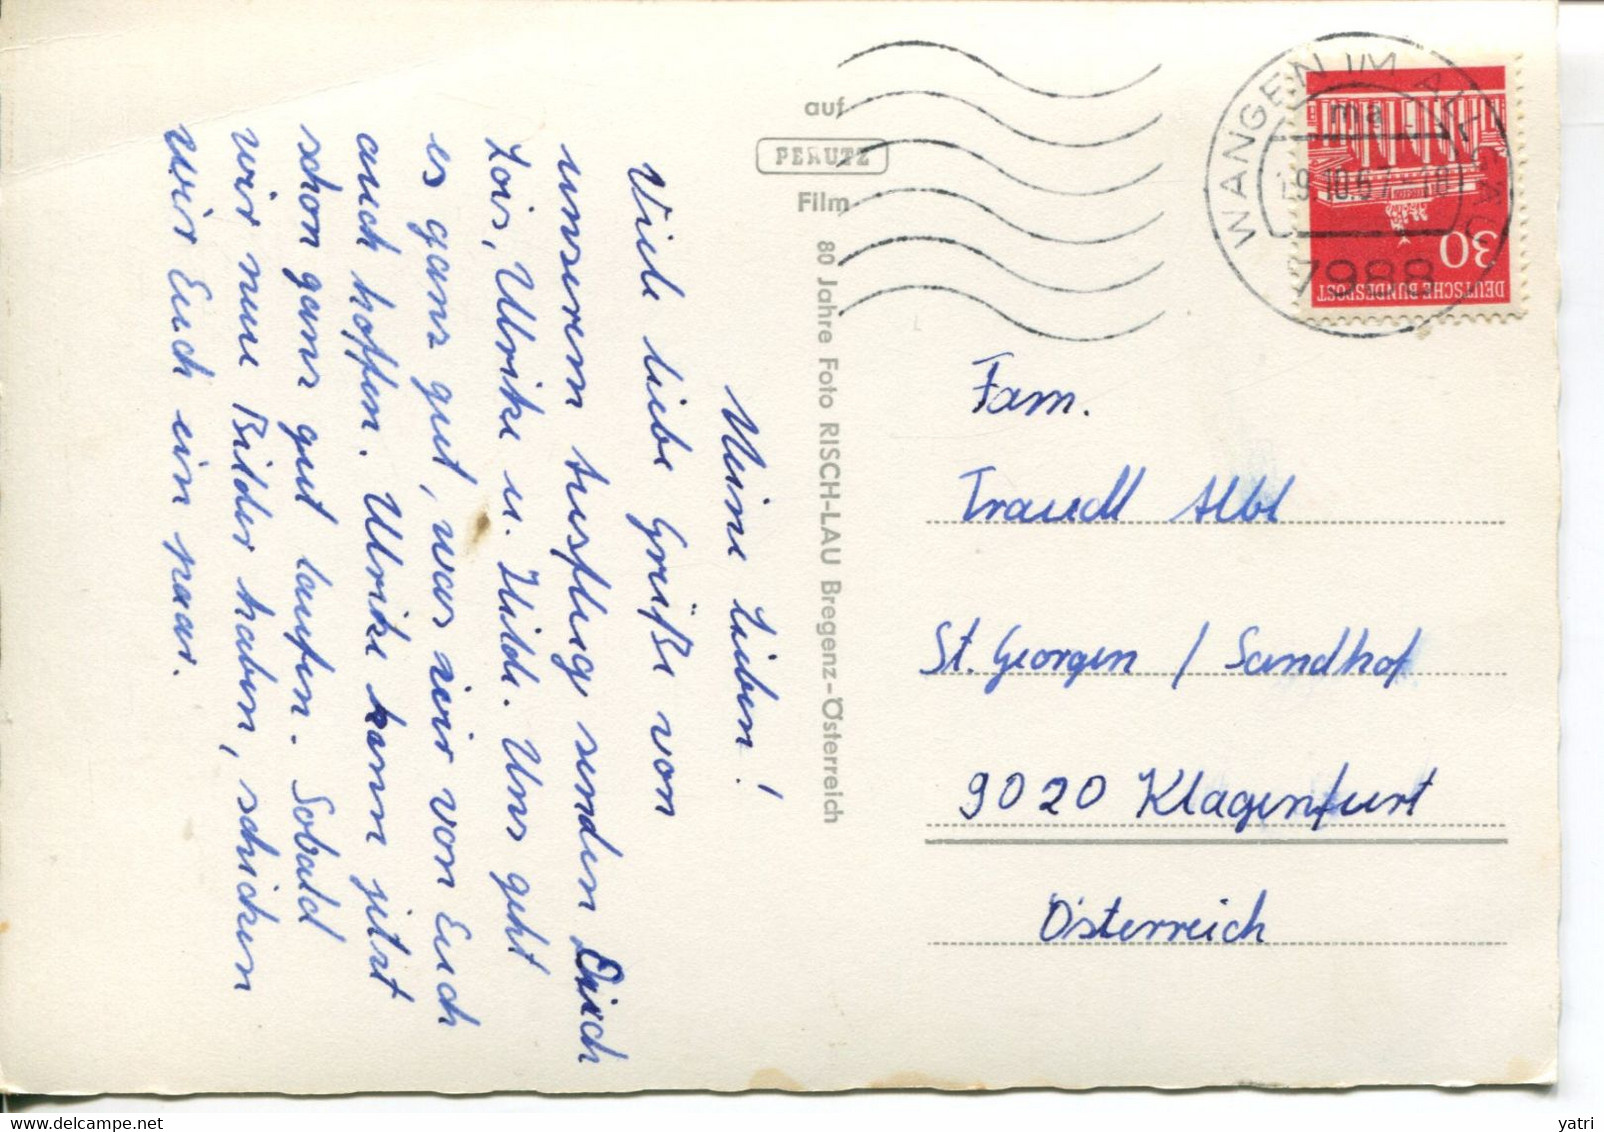 Meine Lieben!
Viele liebe Grüße von
unserem Ausflug senden Euch
Lois, Ulrike u. Hilde. Uns geht
es ganz gut, was wir von Euch
auch hoffen. Ulrike kann jetzt
schon ganz gut laufen. Sobald
wir neue Bilder haben, schicken
wir Euch ein paar.
auf
PERUTZ
Film
80 Jahre Foto RISCH-LAU Bregenz-Österreich
WANGEN IM ALLGÄU
ma
19.10.67-18
7988
30
DEUTSCHE BUNDESPOST
Fam.
Traudl Albl
St. Georgen / Sandhof
9020 Klagenfurt
Österreich
yatri